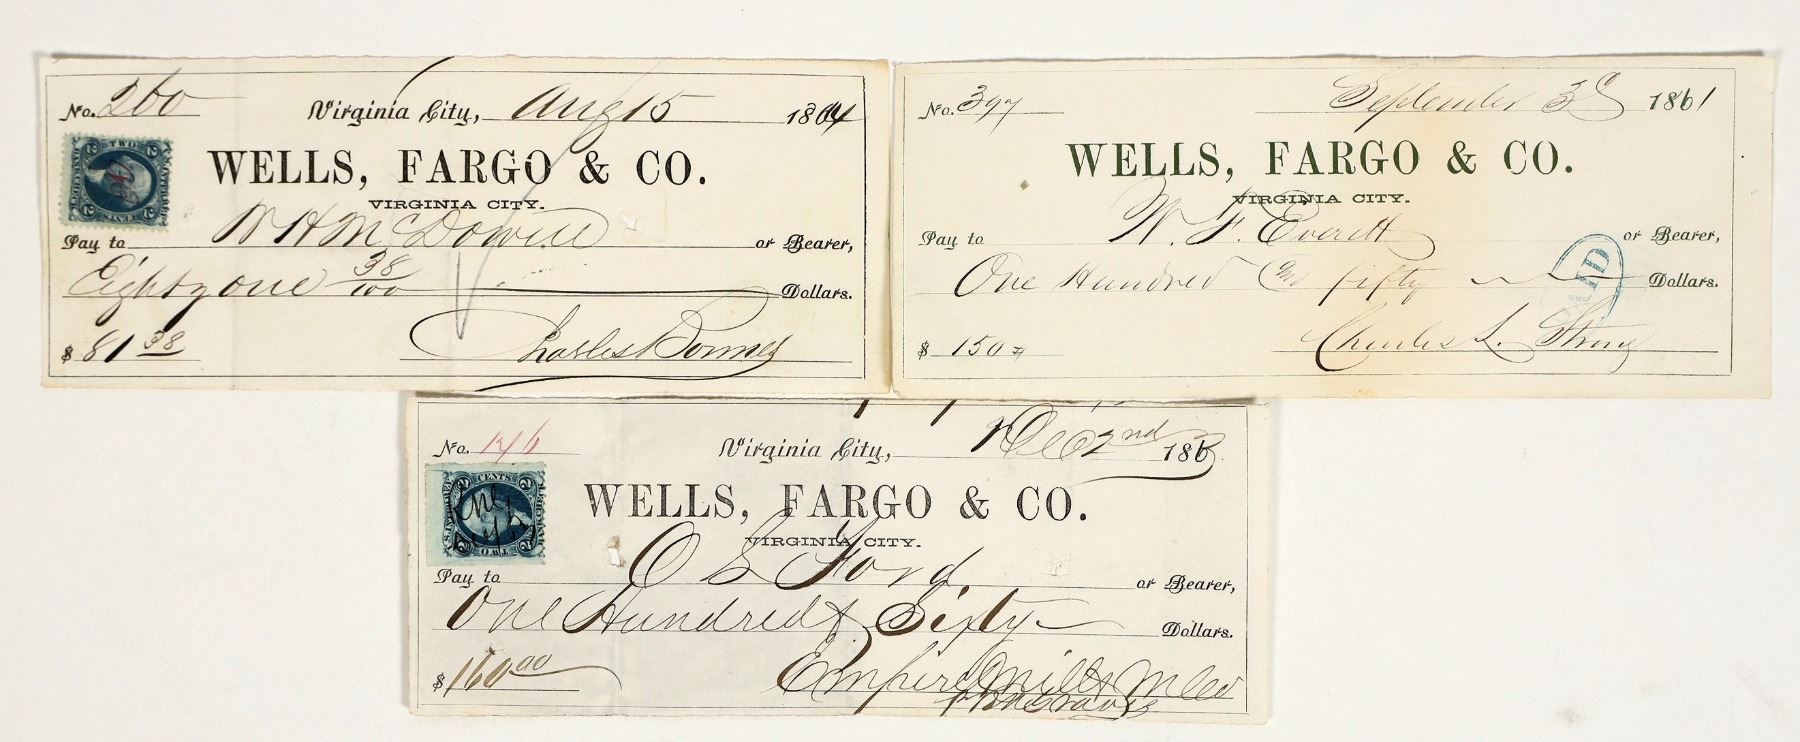 No. 260 Virginia City, Aug 15 1864
TWO
CENTS
WELLS, FARGO & CO.
VIRGINIA CITY.
Pay to W H McDowell or Bearer,
Eighty one 38/100 Dollars.
$ 81 38
Charles Bonner
No. 397 September 3d 1861
WELLS, FARGO & CO.
VIRGINIA CITY.
Pay to W. F. Everett or Bearer,
One Hundred and fifty Dollars.
PAID
$ 150
Charles L. Strong
No. 146 Virginia City, Dec 2nd 1863
2 CENTS 2
TWO
WELLS, FARGO & CO.
VIRGINIA CITY.
Pay to O S Ford or Bearer,
One Hundred & Sixty Dollars.
$ 160.00
Empire Mill & M Co